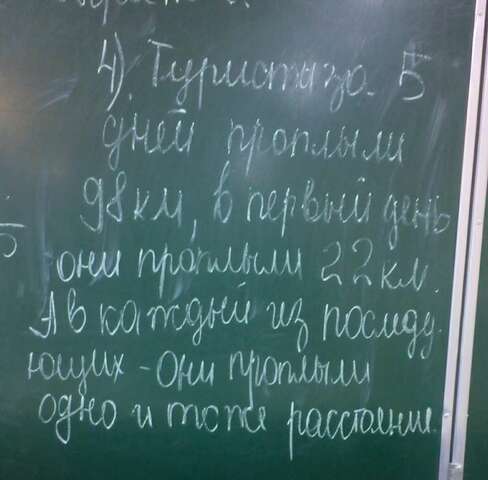 4). Туристы за 5
дней проплыли
98 км, в первый день
они проплыли 22 км.
А в каждый из последу-
ющих - они проплыли
одно и тоже расстояние.